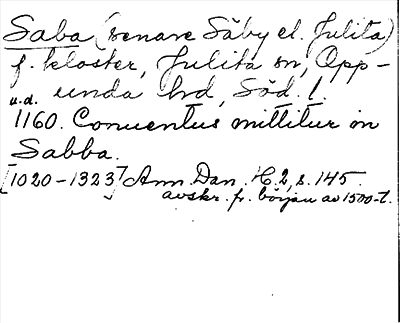 Saba (senare Säby el. Julita)
f. kloster, Julita sn, Opp-
unda hd, Söd. l.
u.d.
1160. Conuentus mittitur in
Sabba.
[1020-1323] Ann. Dan. H. 2, s. 145.
avskr. fr. början av 1500-t.